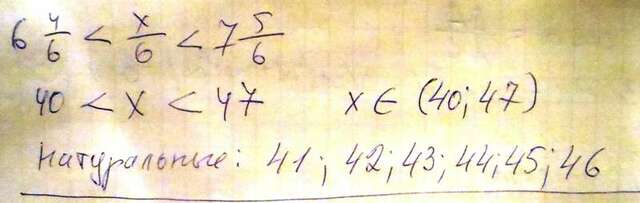 6 4/6 < x/6 < 7 5/6
40 < x < 47 x ∈ (40; 47)
Натуральные: 41; 42; 43; 44; 45; 46